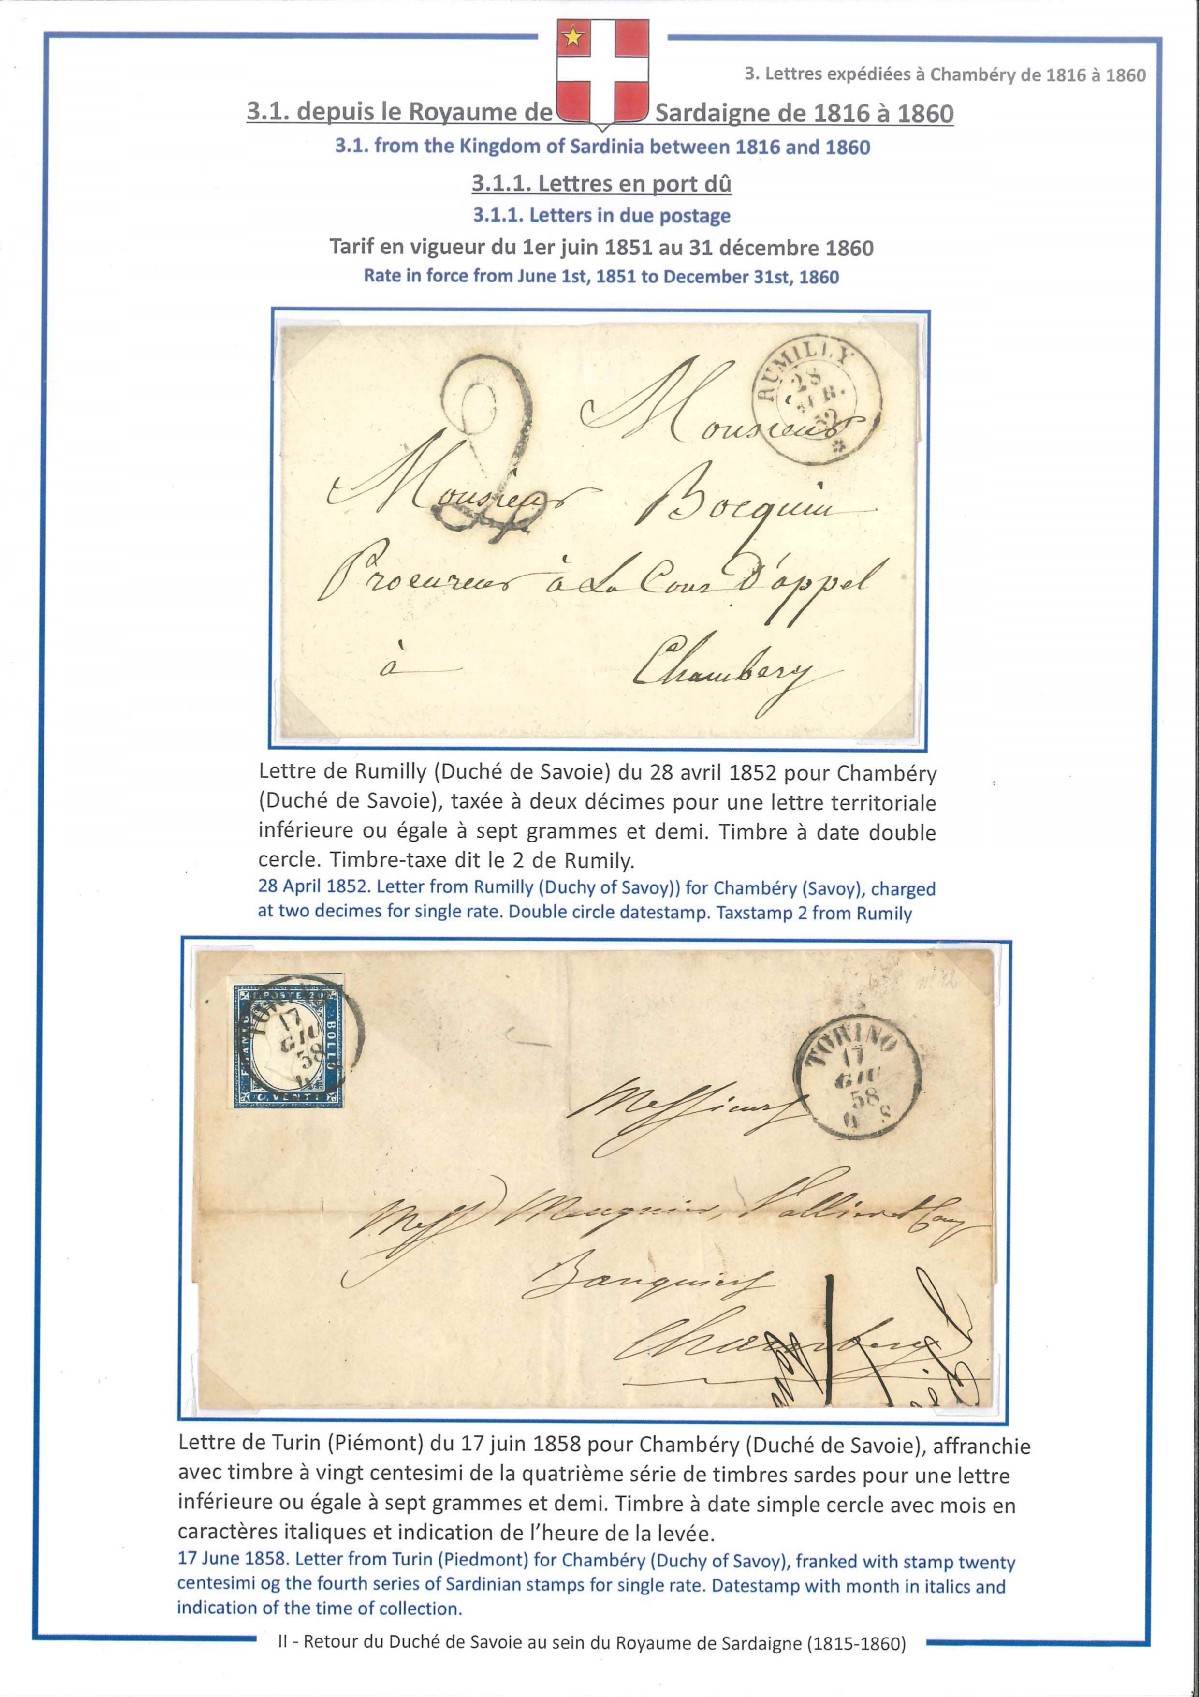 3. Lettres expédiées à Chambéry de 1816 à 1860
3.1. depuis le Royaume de Sardaigne de 1816 à 1860
3.1. from the Kingdom of Sardinia between 1816 and 1860
3.1.1. Lettres en port dû
3.1.1. Letters in due postage
Tarif en vigueur du 1er juin 1851 au 31 décembre 1860
Rate in force from June 1st, 1851 to December 31st, 1860
RUMILLY
28
52
2
Monsieur
Monsieur Bocquin
Procureur à La Cour D'appel
à Chambery
Lettre de Rumilly (Duché de Savoie) du 28 avril 1852 pour Chambéry
(Duché de Savoie), taxée à deux décimes pour une lettre territoriale
inférieure ou égale à sept grammes et demi. Timbre à date double
cercle. Timbre-taxe dit le 2 de Rumily.
28 April 1852. Letter from Rumilly (Duchy of Savoy)) for Chambéry (Savoy), charged
at two decimes for single rate. Double circle datestamp. Taxstamp 2 from Rumily
POSTE 20
BOLLO
17
GIU
58
TORINO
17
GIU
58
8
Messieurs
Banquiers
Chambery
Lettre de Turin (Piémont) du 17 juin 1858 pour Chambéry (Duché de Savoie), affranchie
avec timbre à vingt centesimi de la quatrième série de timbres sardes pour une lettre
inférieure ou égale à sept grammes et demi. Timbre à date simple cercle avec mois en
caractères italiques et indication de l'heure de la levée.
17 June 1858. Letter from Turin (Piedmont) for Chambéry (Duchy of Savoy), franked with stamp twenty
centesimi og the fourth series of Sardinian stamps for single rate. Datestamp with month in italics and
indication of the time of collection.
II - Retour du Duché de Savoie au sein du Royaume de Sardaigne (1815-1860)